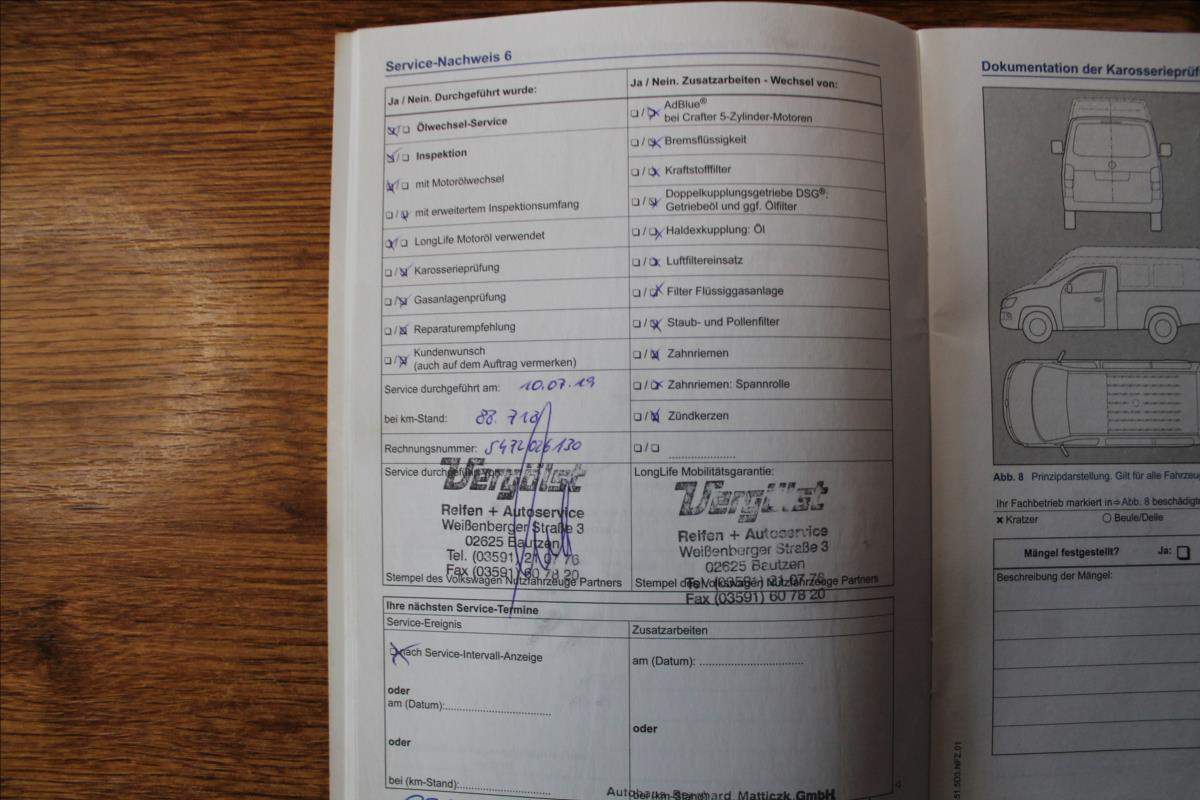 Service-Nachweis 6
Ja / Nein. Durchgeführt wurde:
Ölwechsel-Service
Inspektion
mit Motorölwechsel
mit erweitertem Inspektionsumfang
LongLife Motoröl verwendet
Karosserieprüfung
Gasanlagenprüfung
Reparaturempfehlung
Kundenwunsch
(auch auf dem Auftrag vermerken)
Service durchgeführt am: 10.07.19
bei km-Stand: 88.718
Rechnungsnummer: 5472026130
Ja / Nein. Zusatzarbeiten - Wechsel von:
AdBlue®
bei Crafter 5-Zylinder-Motoren
Bremsflüssigkeit
Kraftstofffilter
Doppelkupplungsgetriebe DSG®:
Getriebeöl und ggf. Ölfilter
Haldexkupplung: Öl
Luftfiltereinsatz
Filter Flüssiggasanlage
Staub- und Pollenfilter
Zahnriemen
Zahnriemen: Spannrolle
Zündkerzen
Service durchgeführt von:
Vergölst
Reifen + Autoservice
Weißenberger Straße 3
02625 Bautzen
Tel. (03591) 21 07 76
Fax (03591) 60 78 20
Stempel des Volkswagen Nutzfahrzeuge Partners
LongLife Mobilitätsgarantie:
Vergölst
Reifen + Autoservice
Weißenberger Straße 3
02625 Bautzen
Tel. (03591) 21 07 76
Fax (03591) 60 78 20
Stempel des Volkswagen Nutzfahrzeuge Partners
Ihre nächsten Service-Termine
Service-Ereignis
nach Service-Intervall-Anzeige
oder
am (Datum):
oder
bei (km-Stand):
Zusatzarbeiten
am (Datum):
oder
bei (km-Stand):
Autohaus Bernhard Matticzk GmbH
Dokumentation der Karosserieprüf
Abb. 8 Prinzipdarstellung. Gilt für alle Fahrzeu
Ihr Fachbetrieb markiert in ⇨ Abb. 8 beschädig
Kratzer
Beule/Delle
Mängel festgestellt? Ja:
Beschreibung der Mängel: